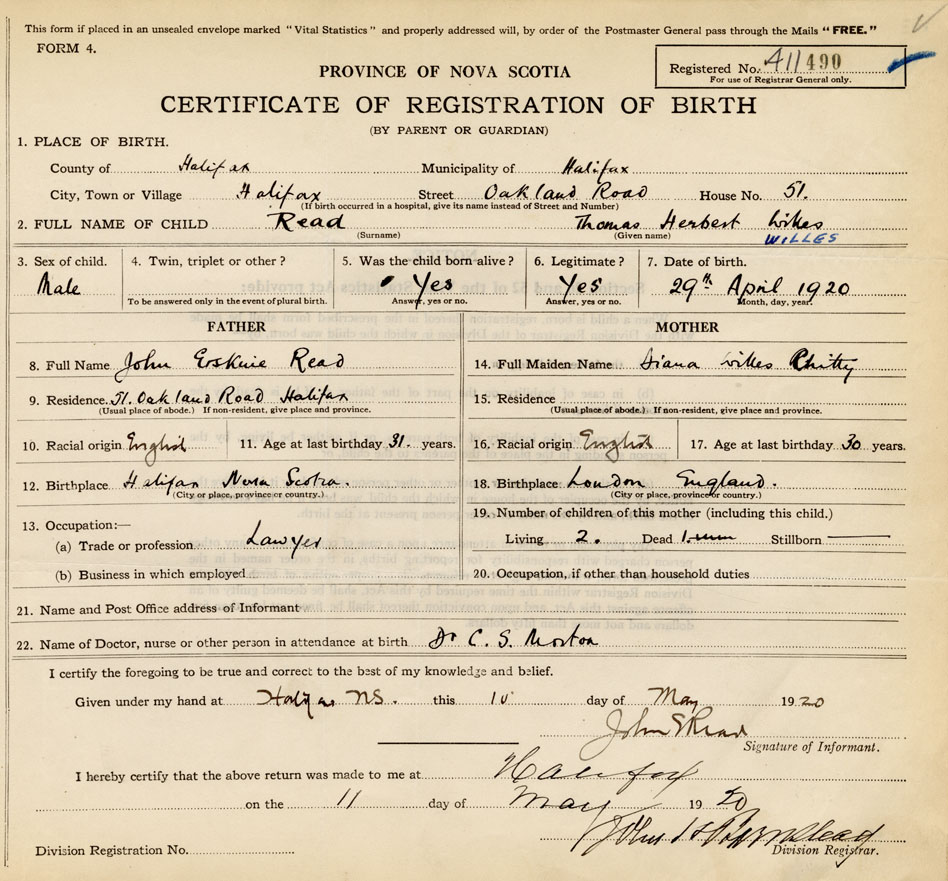 This form if placed in an unsealed envelope marked "Vital Statistics" and properly addressed will, by order of the Postmaster General pass through the Mails "FREE."
FORM 4.
Registered No. 411490
For use of Registrar General only.
PROVINCE OF NOVA SCOTIA
CERTIFICATE OF REGISTRATION OF BIRTH
(BY PARENT OR GUARDIAN)
1. PLACE OF BIRTH.
County of Halifax Municipality of Halifax
City, Town or Village Halifax Street Oakland Road House No. 51.
(If birth occurred in a hospital, give its name instead of Street and Number)
2. FULL NAME OF CHILD Read Thomas Herbert Wilkes
(Surname) (Given name) WILLES
3. Sex of child. 4. Twin, triplet or other? 5. Was the child born alive? 6. Legitimate? 7. Date of birth.
Male Yes Yes 29th April 1920
To be answered only in the event of plural birth. Answer, yes or no. Answer, yes or no. Month, day, year.
FATHER MOTHER
8. Full Name John Erskine Read 14. Full Maiden Name Diana Wilkes Chitty
9. Residence 51. Oakland Road Halifax 15. Residence
(Usual place of abode.) If non-resident, give place and province. (Usual place of abode.) If non-resident, give place and province.
10. Racial origin English 11. Age at last birthday 31. years. 16. Racial origin English 17. Age at last birthday 30 years.
12. Birthplace Halifax Nova Scotia. 18. Birthplace London England.
(City or place, province or country.) (City or place, province or country.)
13. Occupation:— 19. Number of children of this mother (including this child.)
(a) Trade or profession Lawyer Living 2. Dead 1. Stillborn
(b) Business in which employed 20. Occupation, if other than household duties
21. Name and Post Office address of Informant
22. Name of Doctor, nurse or other person in attendance at birth Dr C. S. Morton
I certify the foregoing to be true and correct to the best of my knowledge and belief.
Given under my hand at Halifax NS. this 10 day of May 1920
John E Read
Signature of Informant.
I hereby certify that the above return was made to me at Halifax
on the 11 day of May 1920
John
Division Registration No. Division Registrar.